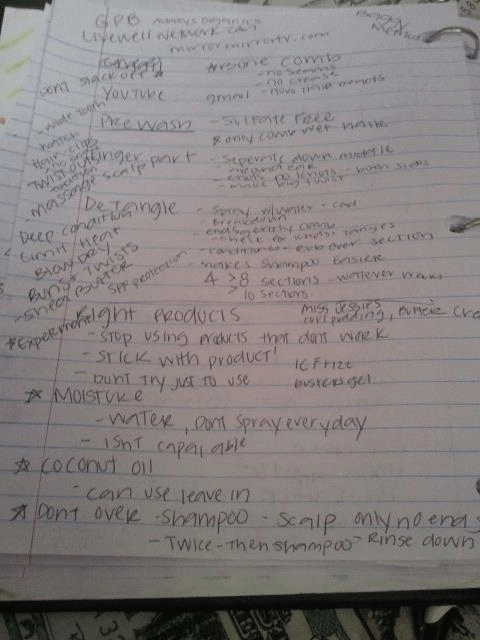 GPB Aubreys Organics
Livewell network.com
Baggy Method
mirrormirrortv.com
Dont slack off
* Bone comb
- no seams
- no crease
YouTube
gmail - how hair reacts
- wide tooth
- watch
Pre wash - Sulfate free
* only comb wet hair
Hair clips
Finger part - Seperate down middle
- around ear
- ends no knots - both sides
- make big twist
- massage scalp
Detangle - Spray w/water + cond
- Breakdown
Deep condition
ends gently comb
- check for knots, tangles
Limit Heat
- conditioner - even over section
Blow dry
- makes shampoo easier
Twists
4 > 8 sections - watever works
> 10 sections.
- shea butter
SPF protection
Right Products
miss jessies
curl pudding, butter cre
* Experiment
- Stop using products that dont work
- Stick with product!
IC Frizz
- Dont try just to use
busters gel
* Moisture
- Water, Dont spray everyday
- Isnt
* Coconut oil
- can use leave in
* Dont over -shampoo - scalp only no ends
- Twice - then shampoo - Rinse down